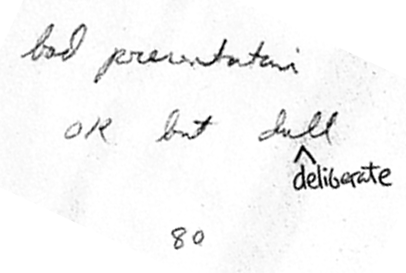 bad presentation
OK but dull
deliberate
80